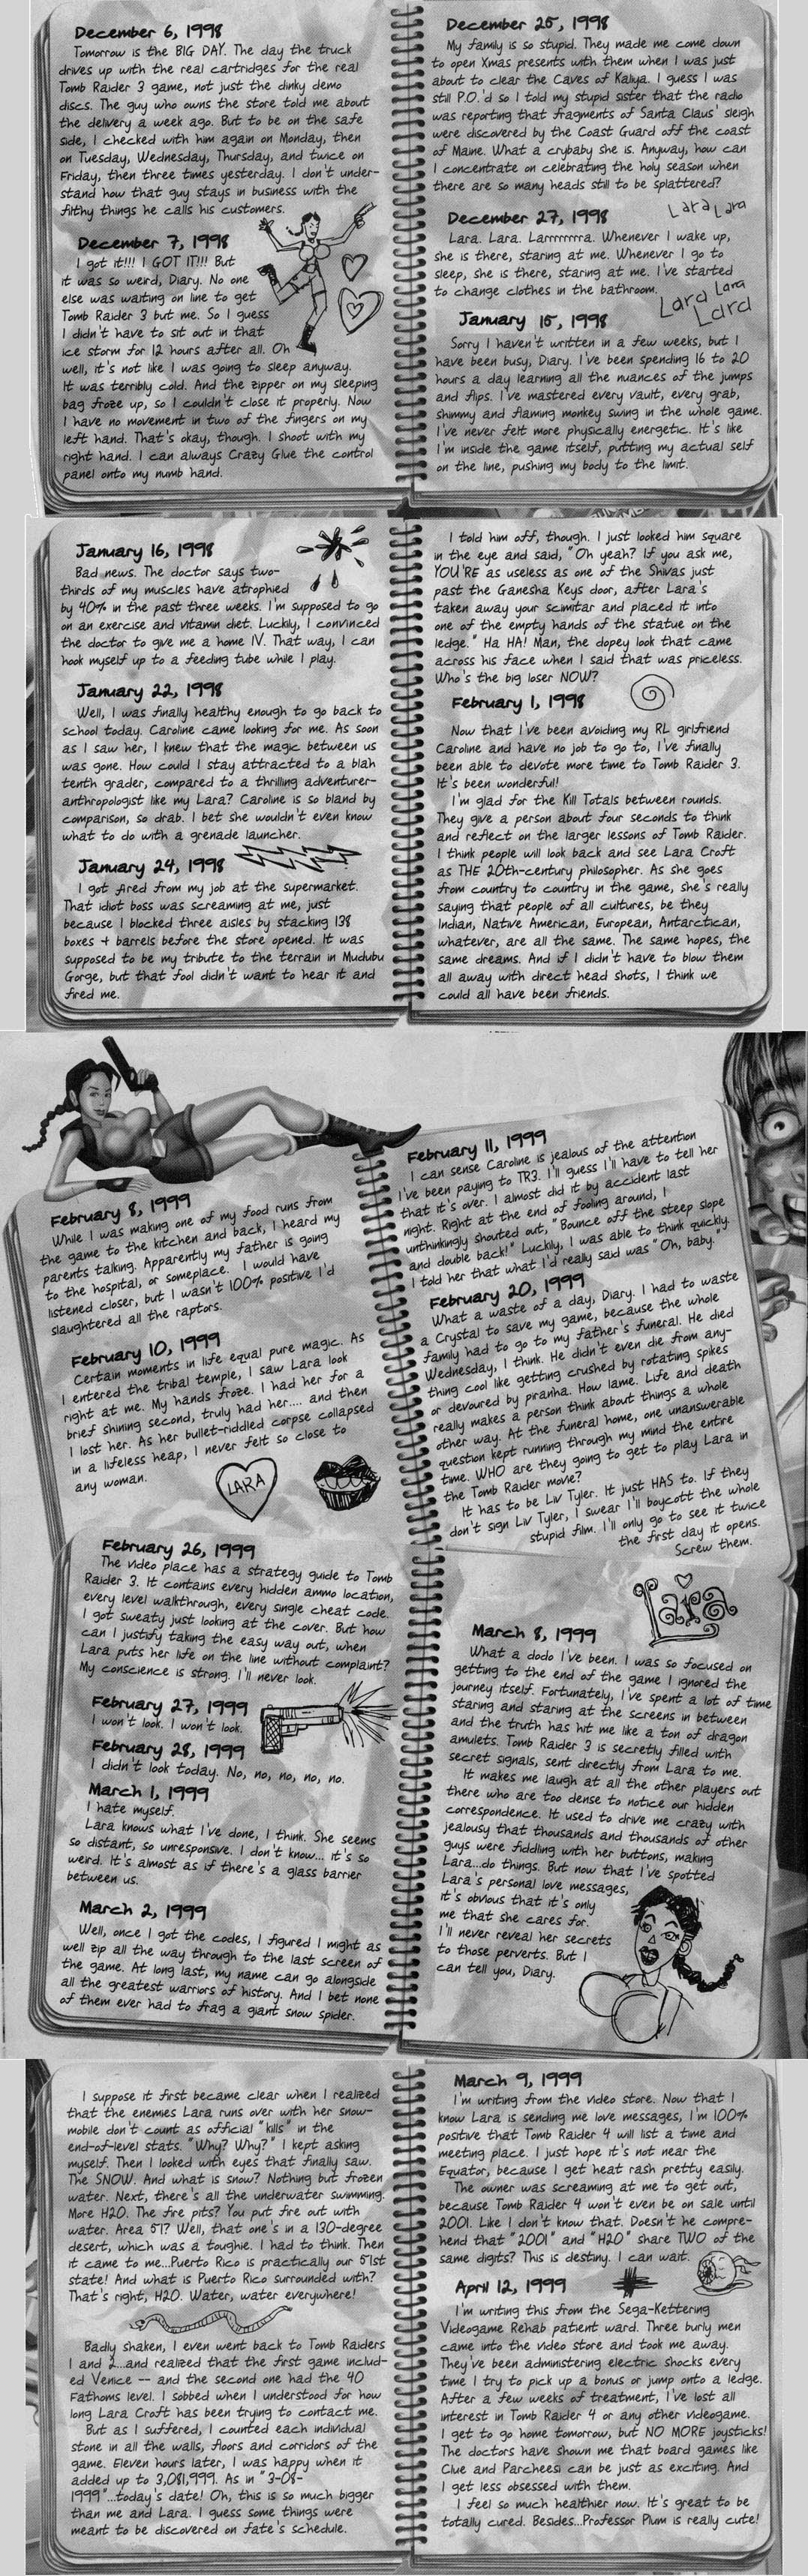 December 6, 1998
Tomorrow is the BIG DAY. The day the truck
drives up with the real cartridges for the real
Tomb Raider 3 game, not just the dinky demo
discs. The guy who owns the store told me about
the delivery a week ago. But to be on the safe
side, I checked with him again on Monday, then
on Tuesday, Wednesday, Thursday, and twice on
Friday, then three times yesterday. I don't under-
stand how that guy stays in business with the
filthy things he calls his customers.
December 7, 1998
I got it!!! I GOT IT!!! But
it was so weird, Diary. No one
else was waiting on line to get
Tomb Raider 3 but me. So I guess
I didn't have to sit out in that
ice storm for 12 hours after all. Oh
well, it's not like I was going to sleep anyway.
It was terribly cold. And the zipper on my sleeping
bag froze up, so I couldn't close it properly. Now
I have no movement in two of the fingers on my
left hand. That's okay, though. I shoot with my
right hand. I can always Crazy Glue the control
panel onto my numb hand.
December 25, 1998
My family is so stupid. They made me come down
to open Xmas presents with them when I was just
about to clear the Caves of Kaliya. I guess I was
still P.O.'d so I told my stupid sister that the radio
was reporting that fragments of Santa Claus' sleigh
were discovered by the Coast Guard off the coast
of Maine. What a crybaby she is. Anyway, how can
I concentrate on celebrating the holy season when
there are so many heads still to be splattered?
Lara Lara
December 27, 1998
Lara. Lara. Larrrrrrra. Whenever I wake up,
she is there, staring at me. Whenever I go to
sleep, she is there, staring at me. I've started
to change clothes in the bathroom.
Lara Lara
Lara
January 15, 1998
Sorry I haven't written in a few weeks, but I
have been busy, Diary. I've been spending 16 to 20
hours a day learning all the nuances of the jumps
and flips. I've mastered every vault, every grab,
shimmy and flaming monkey swing in the whole game.
I've never felt more physically energetic. It's like
I'm inside the game itself, putting my actual self
on the line, pushing my body to the limit.
January 16, 1998
Bad news. The doctor says two-
thirds of my muscles have atrophied
by 40% in the past three weeks. I'm supposed to go
on an exercise and vitamin diet. Luckily, I convinced
the doctor to give me a home IV. That way, I can
hook myself up to a feeding tube while I play.
January 22, 1998
Well, I was finally healthy enough to go back to
school today. Caroline came looking for me. As soon
as I saw her, I knew that the magic between us
was gone. How could I stay attracted to a blah
tenth grader, compared to a thrilling adventurer-
anthropologist like my Lara? Caroline is so bland by
comparison, so drab. I bet she wouldn't even know
what to do with a grenade launcher.
January 24, 1998
I got fired from my job at the supermarket.
That idiot boss was screaming at me, just
because I blocked three aisles by stacking 138
boxes + barrels before the store opened. It was
supposed to be my tribute to the terrain in Mudubu
Gorge, but that fool didn't want to hear it and
fired me.
I told him off, though. I just looked him square
in the eye and said, "Oh yeah? If you ask me,
YOU'RE as useless as one of the Shivas just
past the Ganesha Keys door, after Lara's
taken away your scimitar and placed it into
one of the empty hands of the statue on the
ledge." Ha HA! Man, the dopey look that came
across his face when I said that was priceless.
Who's the big loser NOW?
February 1, 1998
Now that I've been avoiding my RL girlfriend
Caroline and have no job to go to, I've finally
been able to devote more time to Tomb Raider 3.
It's been wonderful!
I'm glad for the Kill Totals between rounds.
They give a person about four seconds to think
and reflect on the larger lessons of Tomb Raider.
I think people will look back and see Lara Croft
as THE 20th-century philosopher. As she goes
from country to country in the game, she's really
saying that people of all cultures, be they
Indian, Native American, European, Antarctican,
whatever, are all the same. The same hopes, the
same dreams. And if I didn't have to blow them
all away with direct head shots, I think we
could all have been friends.
February 8, 1999
While I was making one of my food runs from
the game to the kitchen and back, I heard my
parents talking. Apparently my father is going
to the hospital, or someplace. I would have
listened closer, but I wasn't 100% positive I'd
slaughtered all the raptors.
February 10, 1999
Certain moments in life equal pure magic. As
I entered the tribal temple, I saw Lara look
right at me. My hands froze. I had her for a
brief shining second, truly had her.... and then
I lost her. As her bullet-riddled corpse collapsed
in a lifeless heap, I never felt so close to
any woman.
LARA
February 11, 1999
I can sense Caroline is jealous of the attention
I've been paying to TR3. I'll guess I'll have to tell her
that it's over. I almost did it by accident last
night. Right at the end of fooling around, I
unthinkingly shouted out, "Bounce off the steep slope
and double back!" Luckily, I was able to think quickly.
I told her that what I'd really said was "Oh, baby."
February 20, 1999
What a waste of a day, Diary. I had to waste
a Crystal to save my game, because the whole
family had to go to my father's funeral. He died
Wednesday, I think. He didn't even die from any-
thing cool like getting crushed by rotating spikes
or devoured by piranha. How lame. Life and death
really makes a person think about things a whole
other way. At the funeral home, one unanswerable
question kept running through my mind the entire
time. WHO are they going to get to play Lara in
the Tomb Raider movie?
It has to be Liv Tyler. It just HAS to. If they
don't sign Liv Tyler, I swear I'll boycott the whole
stupid film. I'll only go to see it twice
the first day it opens.
Screw them.
February 26, 1999
The video place has a strategy guide to Tomb
Raider 3. It contains every hidden ammo location,
every level walkthrough, every single cheat code.
I got sweaty just looking at the cover. But how
can I justify taking the easy way out, when
Lara puts her life on the line without complaint?
My conscience is strong. I'll never look.
February 27, 1999
I won't look. I won't look.
February 28, 1999
I didn't look today. No, no, no, no, no.
March 1, 1999
I hate myself.
Lara knows what I've done, I think. She seems
so distant, so unresponsive. I don't know... it's so
weird. It's almost as if there's a glass barrier
between us.
March 2, 1999
Well, once I got the codes, I figured I might as
well zip all the way through to the last screen of
the game. At long last, my name can go alongside
all the greatest warriors of history. And I bet none
of them ever had to frag a giant snow spider.
Lara
March 8, 1999
What a dodo I've been. I was so focused on
getting to the end of the game I ignored the
journey itself. Fortunately, I've spent a lot of time
staring and staring at the screens in between
and the truth has hit me like a ton of dragon
amulets. Tomb Raider 3 is secretly filled with
secret signals, sent directly from Lara to me.
It makes me laugh at all the other players out
there who are too dense to notice our hidden
correspondence. It used to drive me crazy with
jealousy that thousands and thousands of other
guys were fiddling with her buttons, making
Lara...do things. But now that I've spotted
Lara's personal love messages,
it's obvious that it's only
me that she cares for.
I'll never reveal her secrets
to those perverts. But I
can tell you, Diary.
I suppose it first became clear when I realized
that the enemies Lara runs over with her snow-
mobile don't count as official "kills" in the
end-of-level stats. "Why? Why?" I kept asking
myself. Then I looked with eyes that finally saw.
The SNOW. And what is snow? Nothing but frozen
water. Next, there's all the underwater swimming.
More H2O. The fire pits? You put fire out with
water. Area 51? Well, that one's in a 130-degree
desert, which was a toughie. I had to think. Then
it came to me...Puerto Rico is practically our 51st
state! And what is Puerto Rico surrounded with?
That's right, H2O. Water, water everywhere!
Badly shaken, I even went back to Tomb Raiders
1 and 2...and realized that the first game includ-
ed Venice -- and the second one had the 40
Fathoms level. I sobbed when I understood for how
long Lara Croft has been trying to contact me.
But as I suffered, I counted each individual
stone in all the walls, floors and corridors of the
game. Eleven hours later, I was happy when it
added up to 3,081,999. As in "3-08-
1999"...today's date! Oh, this is so much bigger
than me and Lara. I guess some things were
meant to be discovered on fate's schedule.
March 9, 1999
I'm writing from the video store. Now that I
know Lara is sending me love messages, I'm 100%
positive that Tomb Raider 4 will list a time and
meeting place. I just hope it's not near the
Equator, because I get heat rash pretty easily.
The owner was screaming at me to get out,
because Tomb Raider 4 won't even be on sale until
2001. Like I don't know that. Doesn't he compre-
hend that "2001" and "H2O" share TWO of the
same digits? This is destiny. I can wait.
April 12, 1999
I'm writing this from the Sega-Kettering
Videogame Rehab patient ward. Three burly men
came into the video store and took me away.
They've been administering electric shocks every
time I try to pick up a bonus or jump onto a ledge.
After a few weeks of treatment, I've lost all
interest in Tomb Raider 4 or any other videogame.
I get to go home tomorrow, but NO MORE joysticks!
The doctors have shown me that board games like
Clue and Parcheesi can be just as exciting. And
I get less obsessed with them.
I feel so much healthier now. It's great to be
totally cured. Besides...Professor Plum is really cute!